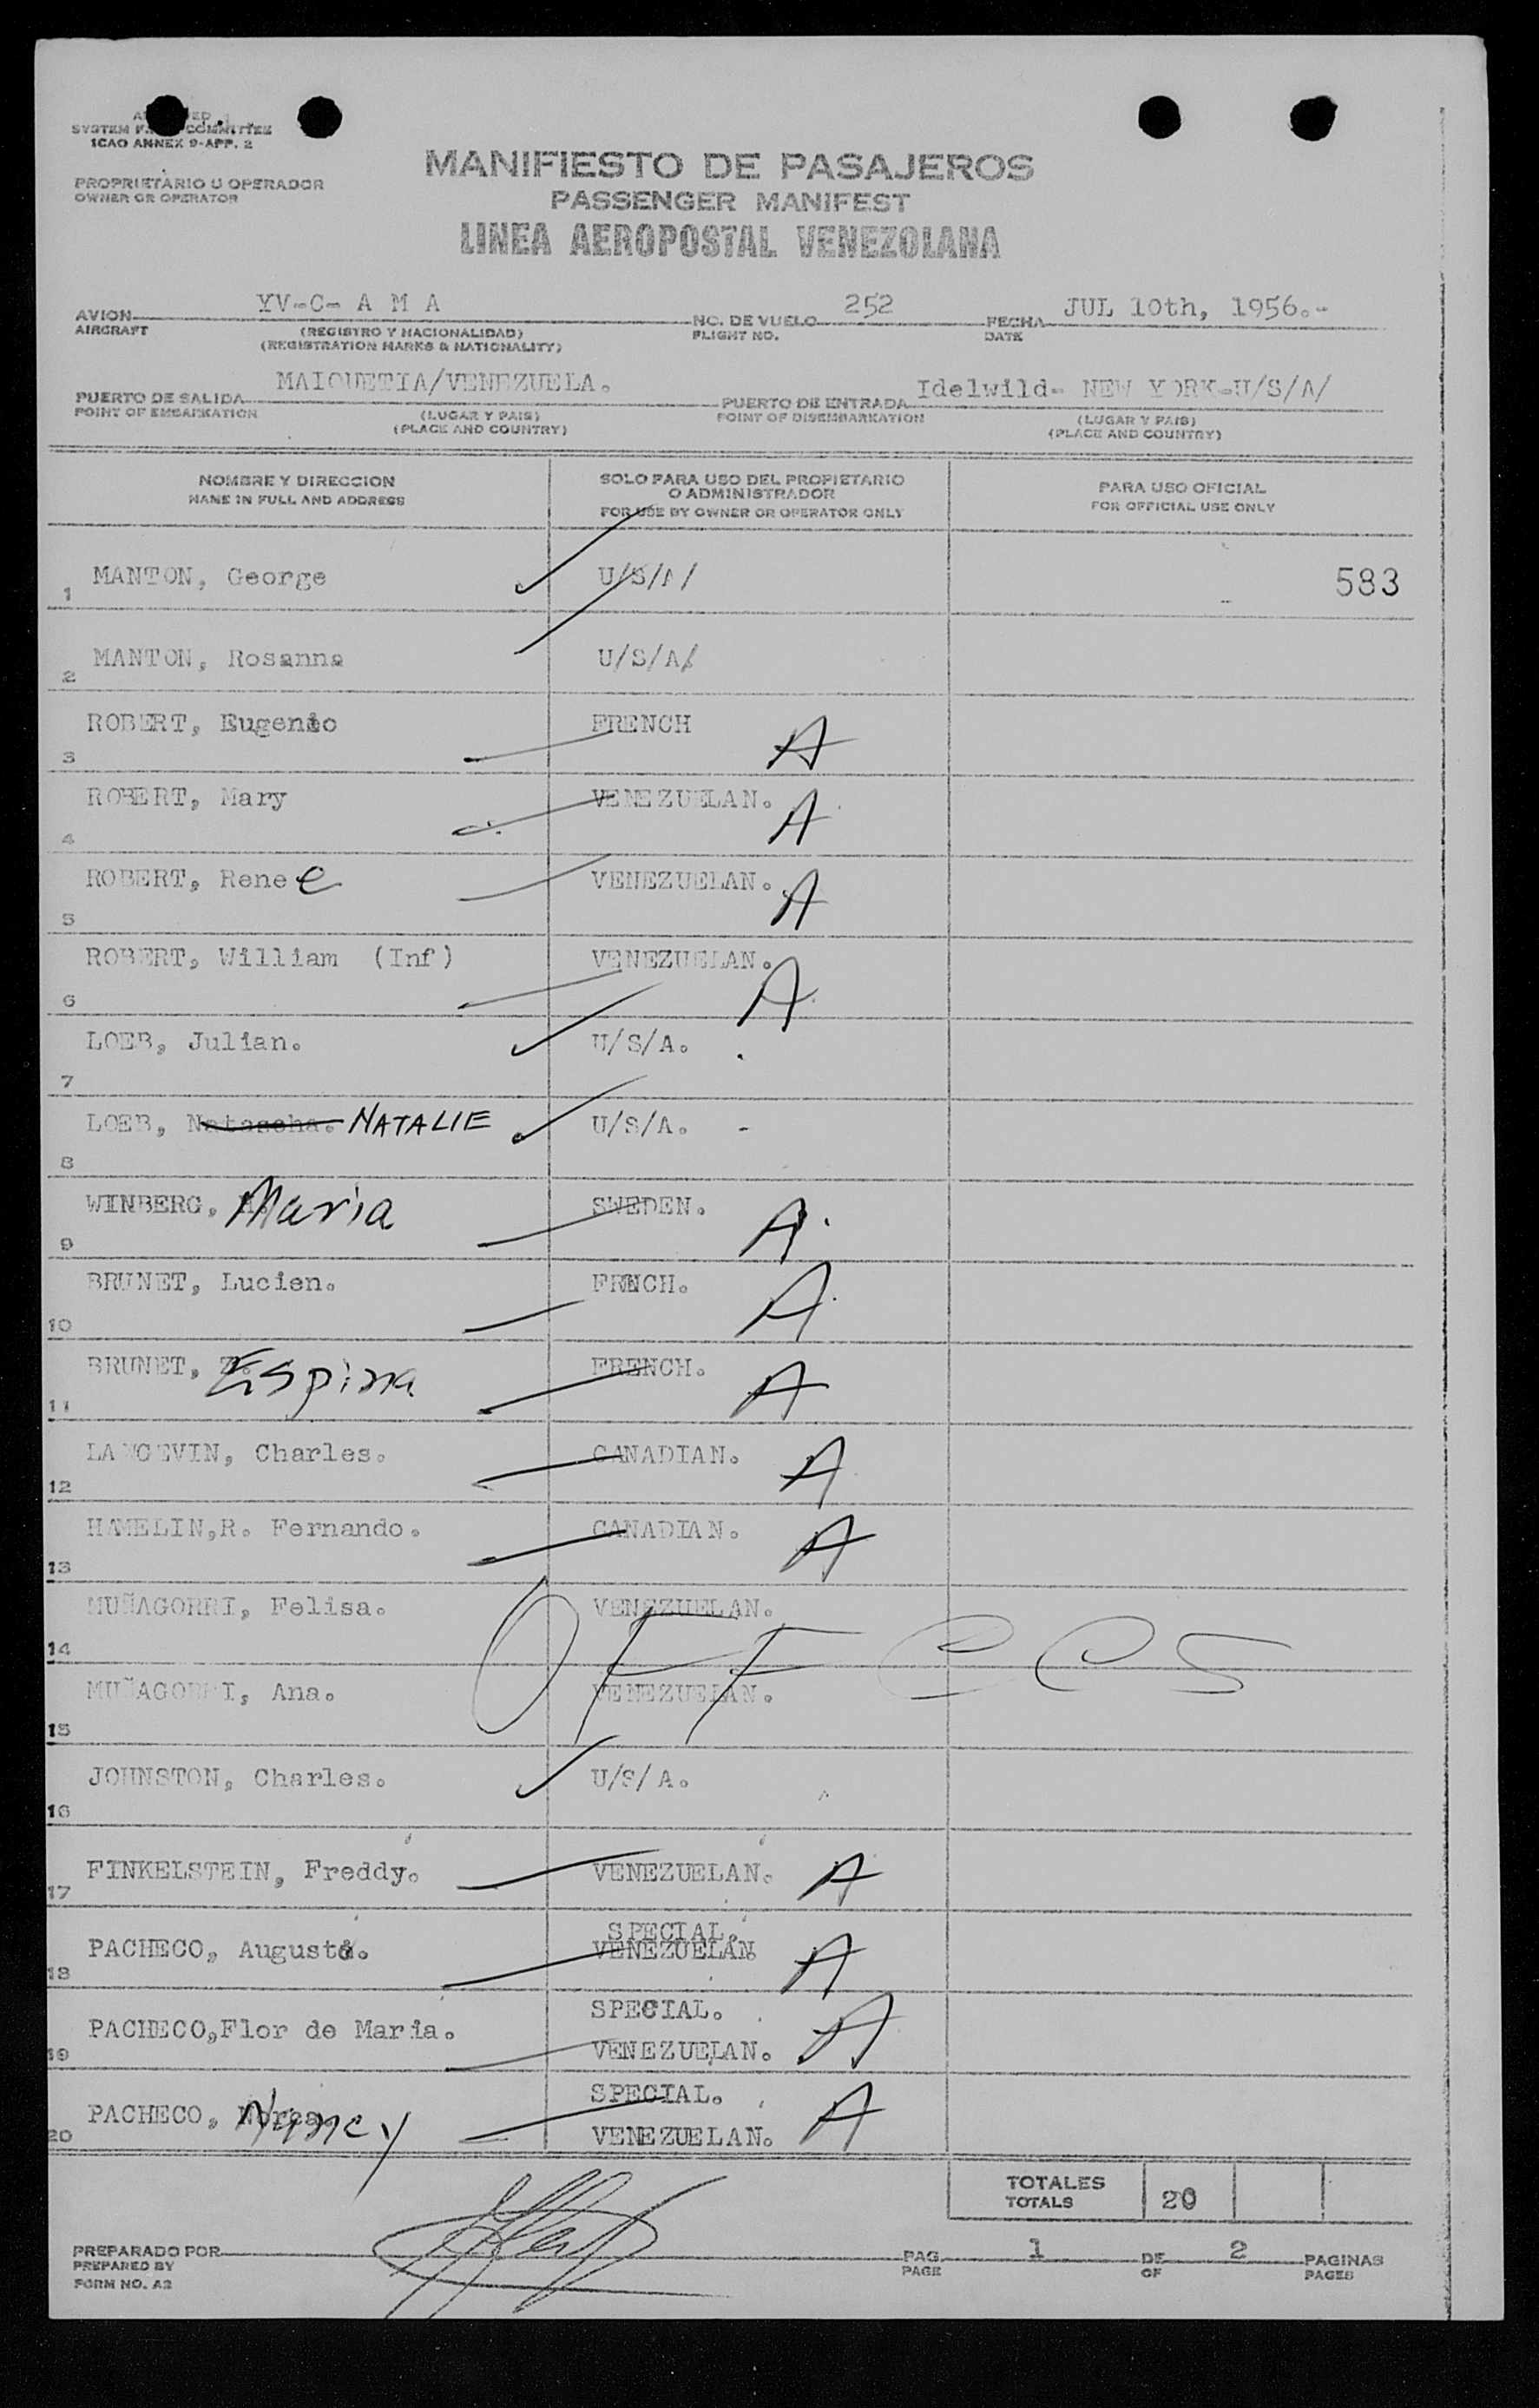 SYSTEM COMMITTEE
ICAO ANNEX 9-APP. 2
PROPRIETARIO U OPERADOR
OWNER OR OPERATOR
MANIFIESTO DE PASAJEROS
PASSENGER MANIFEST
LINEA AEROPOSTAL VENEZOLANA
AVION YV-C- A M A NO. DE VUELO 252 FECHA JUL 10th, 1956.-
AIRCRAFT (REGISTRO Y NACIONALIDAD) FLIGHT NO. DATE
(REGISTRATION MARKS & NATIONALITY)
PUERTO DE SALIDA MAIQUETIA/VENEZUELA. PUERTO DE ENTRADA Idelwild- NEW YORK-U/S/A/
POINT OF EMBARKATION (LUGAR Y PAIS) POINT OF DISEMBARKATION (LUGAR Y PAIS)
(PLACE AND COUNTRY) (PLACE AND COUNTRY)
NOMBRE Y DIRECCION SOLO PARA USO DEL PROPIETARIO O ADMINISTRADOR PARA USO OFICIAL
NAME IN FULL AND ADDRESS FOR USE BY OWNER OR OPERATOR ONLY FOR OFFICIAL USE ONLY
1 MANTON, George U/S/A/ 583
2 MANTON, Rosanna U/S/A/
3 ROBERT, Eugenio FRENCH A
4 ROBERT, Mary VENEZUELAN. A
5 ROBERT, Rene e VENEZUELAN. A
6 ROBERT, William (Inf) VENEZUELAN. A
7 LOEB, Julian. U/S/A.
8 LOEB, Natascha. NATALIE U/S/A. -
9 WINBERG, Maria SWEDEN. A
10 BRUNET, Lucien. FRNCH. A
11 BRUNET, Espina FRENCH. A
12 LANGEVIN, Charles. CANADIAN. A
13 HAMELIN,R. Fernando. CANADIAN. A
14 MUÑAGORRI, Felisa. VENEZUELAN.
OFF CCS
15 MUÑAGORRI, Ana. VENEZUELAN.
16 JOHNSTON, Charles. U/S/A.
17 FINKELSTEIN, Freddy. VENEZUELAN. A
SPECIAL.
18 PACHECO, Augusto. VENEZUELAN A
SPECIAL.
19 PACHECO,Flor de Maria. VENEZUELAN. A
SPECIAL.
20 PACHECO, Nancy VENEZUELAN. A
TOTALES
TOTALS 20
PREPARADO POR PAG. 1 DE 2 PAGINAS
PREPARED BY PAGE OF PAGES
FORM NO. A2